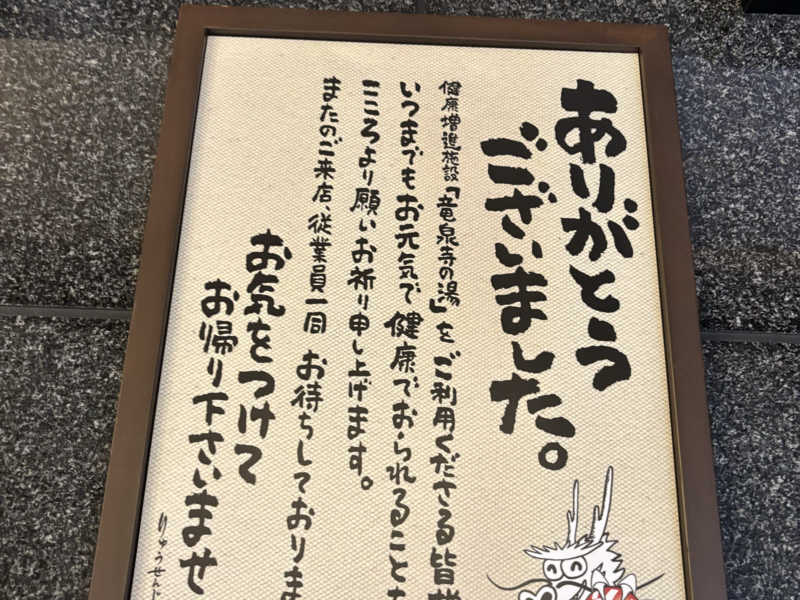 ありがとう
ございました。
健康増進施設「竜泉寺の湯」をご利用くださる皆様
いつまでもお元気で健康でおられることを
こころより願いお祈り申し上げます。
またのご来店、従業員一同 お待ちしておりま
お気をつけて
お帰り下さいませ
りゅうせんじ